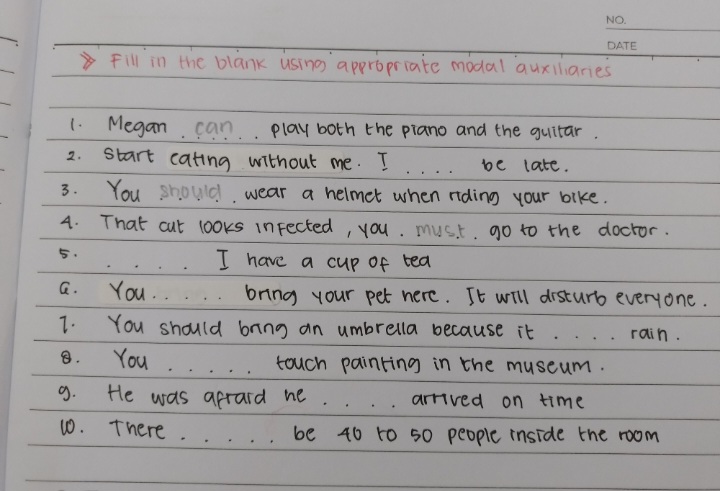 NO.
DATE
Fill in the blank using appropriate modal auxiliaries
1. Megan . can . . play both the piano and the guitar .
2. Start eating without me. I . . . . be late.
3. You should . wear a helmet when riding your bike.
4. That cut looks infected, you . must . go to the doctor.
5. . . . . I have a cup of tea
6. You . . . . . bring your pet here. It will disturb everyone.
7. You should bring an umbrella because it . . . . rain.
8. You . . . . . touch painting in the museum.
9. He was afraid he . . . . arrived on time
10. There . . . . . be 40 to 50 people inside the room